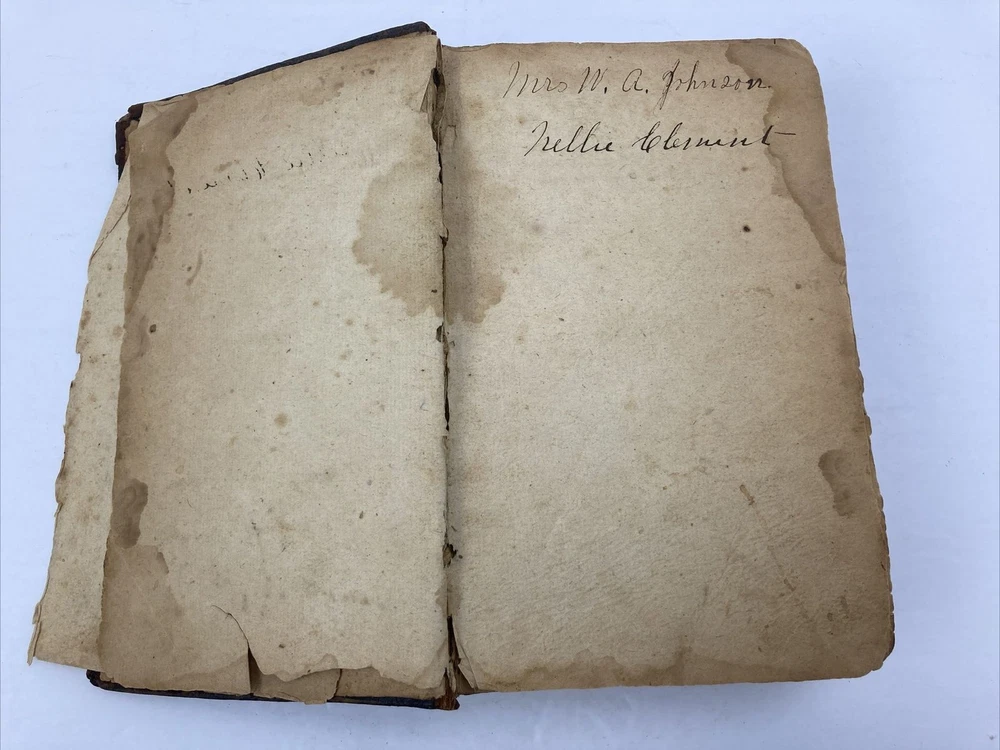 Mrs W. A. Johnson.
Nellie Clement